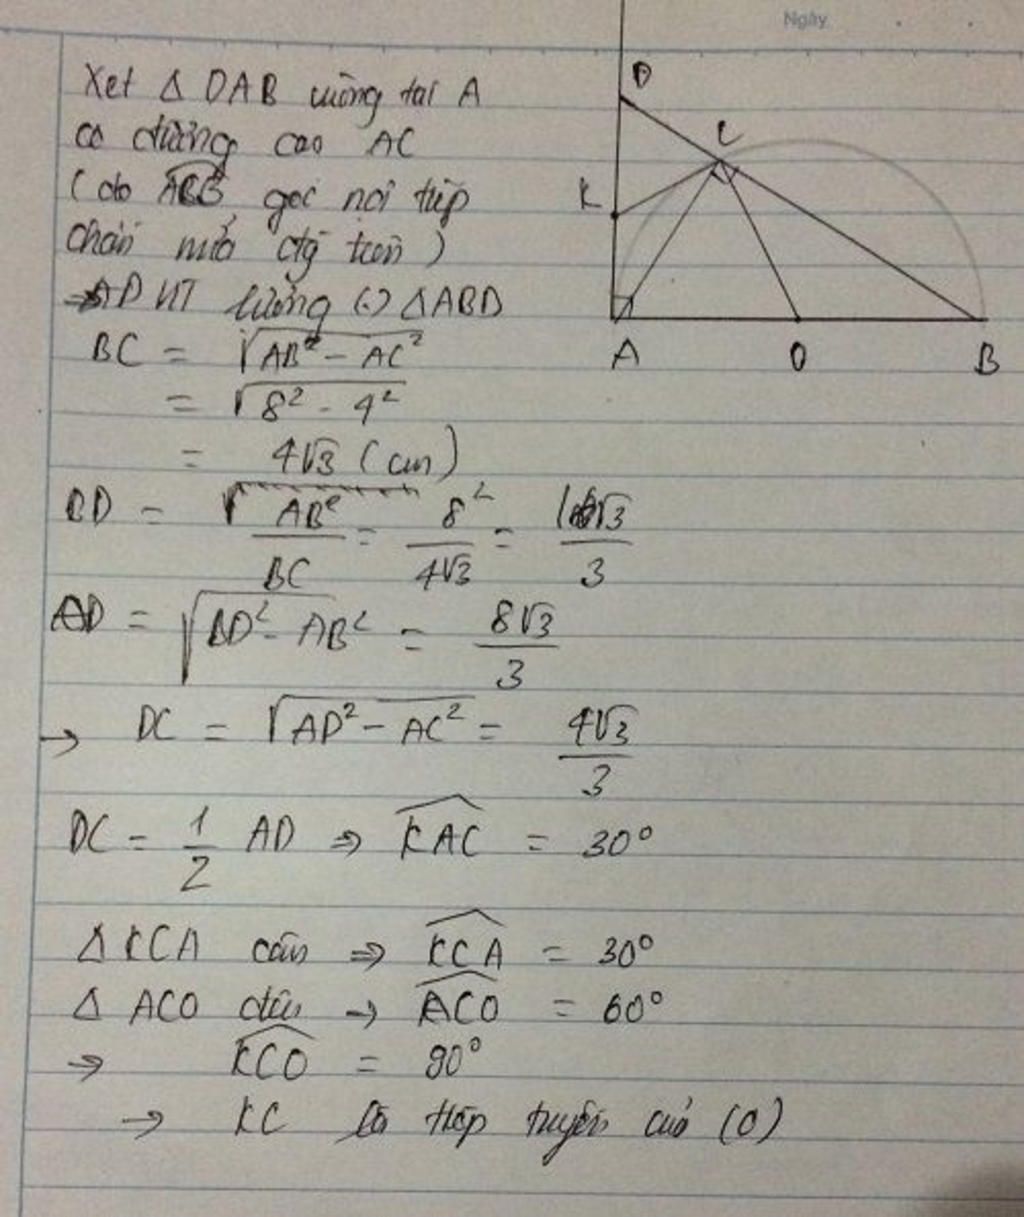 Ngày
Xét Δ DAB vuông tại A
có đường cao AC
(do ACB góc nội tiếp
chắn nửa đg tròn)
⇒ AD HT lượng (-) ΔABD
BC = √(AB² - AC²)
= √(8² - 4²)
= 4√3 (cm)
BD = AB²/BC = 8²/4√3 = 16√3/3
AD = √(BD² - AB²) = 8√3/3
→ DC = √(AD² - AC²) = 4√3/3
DC = 1/2 AD ⇒ KAC = 30°
Δ KCA cân ⇒ KCA = 30°
Δ ACO đều → ACO = 60°
⇒ KCO = 90°
→ KC là tiếp tuyến của (O)
D
C
K
A O B